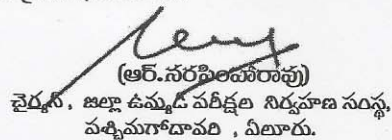 (ఆర్.నరసింహారావు)
చైర్మన్, జిల్లా ఉమ్మడి పరీక్షల నిర్వహణ సంస్థ,
పశ్చిమగోదావరి , ఏలూరు.